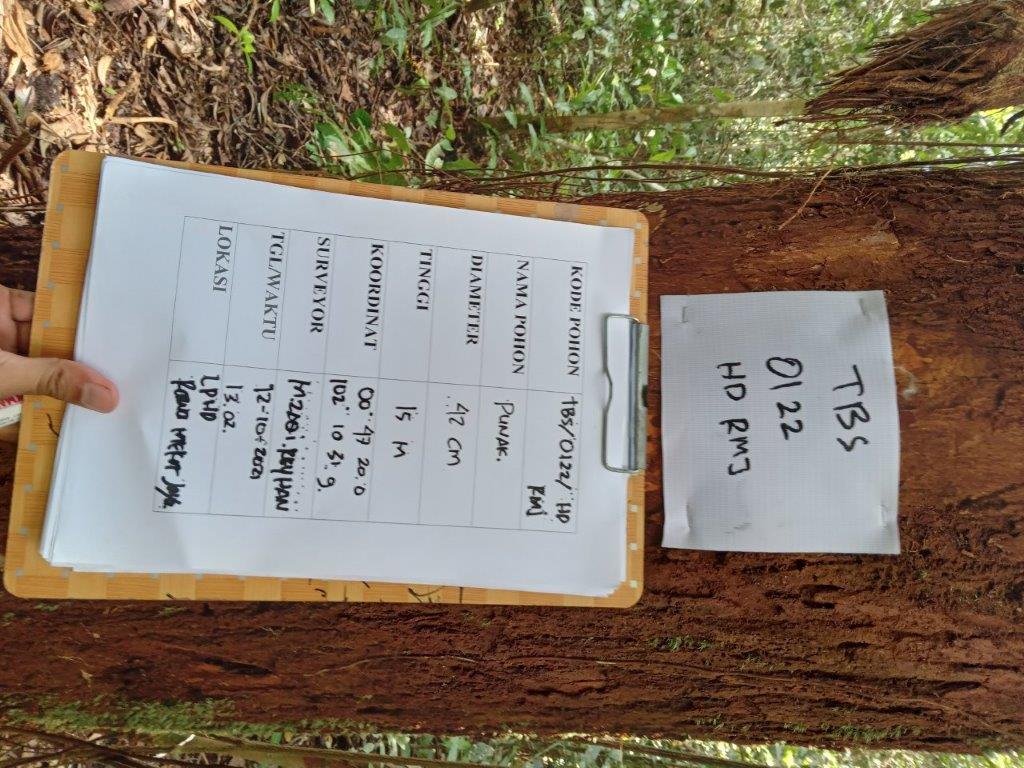 TBS
0122
HD RMJ
KODE POHON TBS/0122/ HD
RMJ
NAMA POHON PUNAK.
DIAMETER 42 CM
TINGGI 15 M
KOORDINAT 00° 47 20.0
102° 10 31.9.
SURVEYOR M.ZAQI.REYHAN
TGL/WAKTU 12-10-2021
13.02.
LOKASI LPHD
Rawa Mekar Jaya.